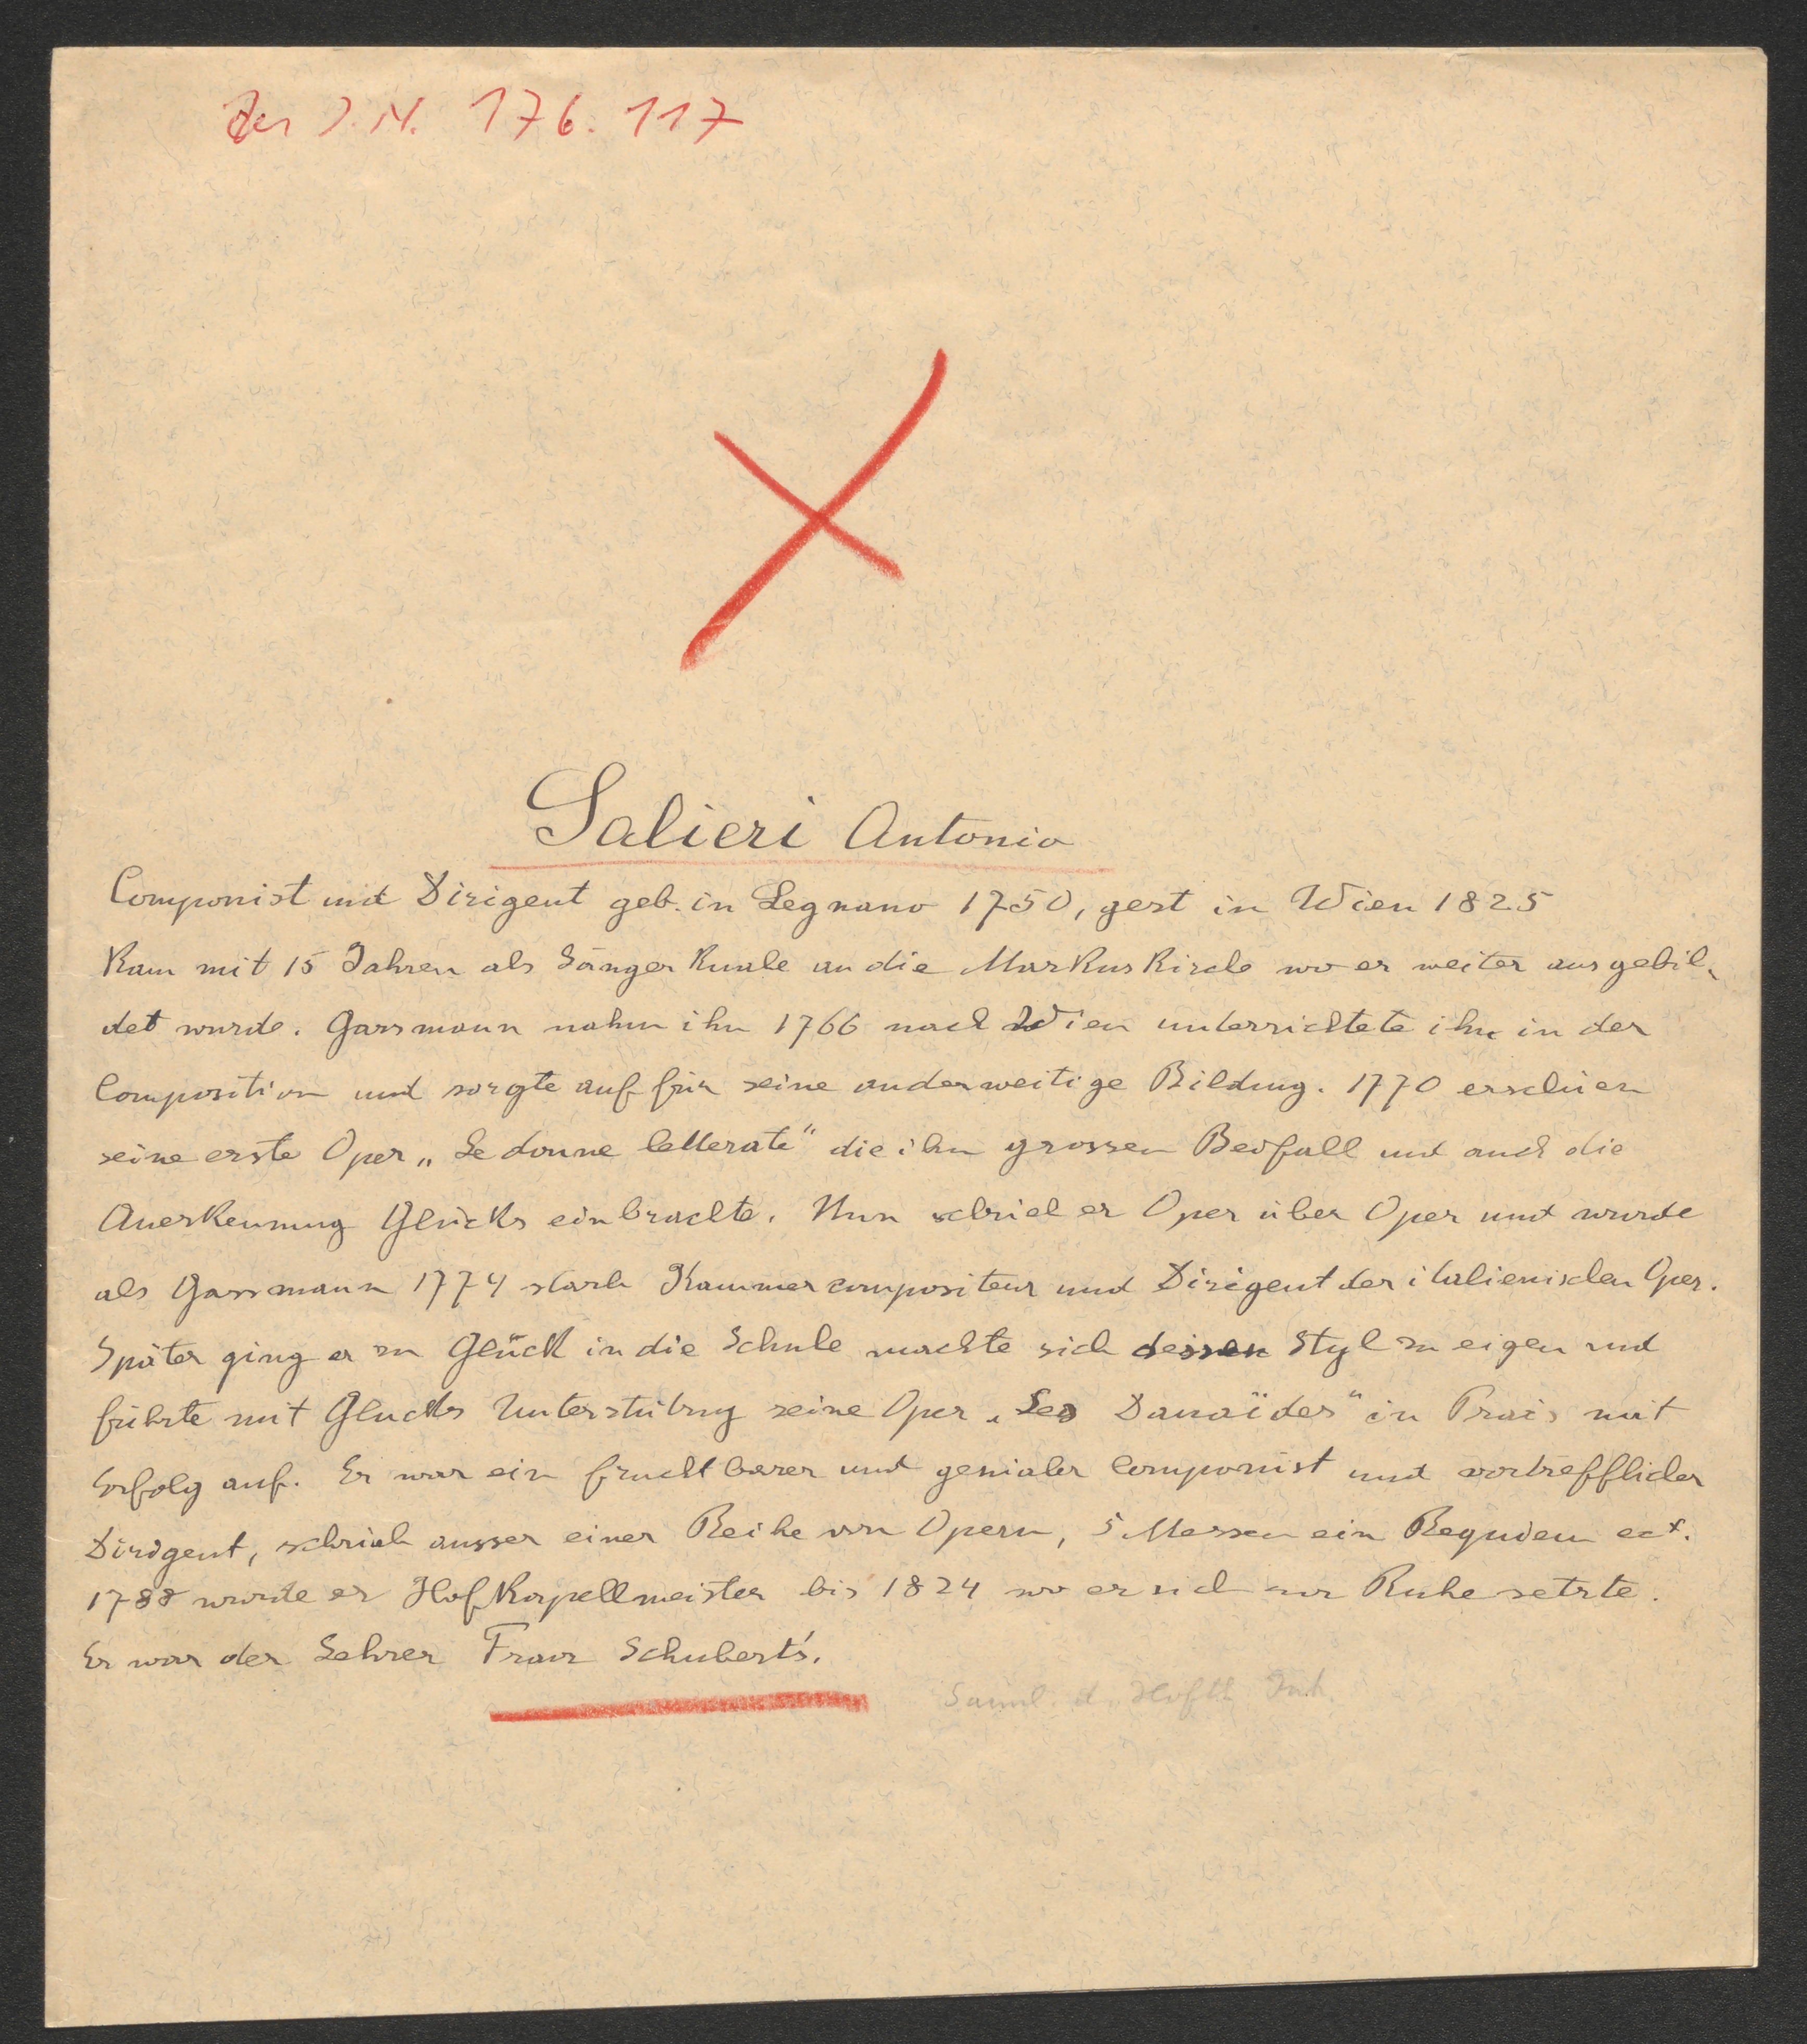 Zu I.N. 176.117
Salieri Antonio
Componist und Dirigent geb. in Legnano 1750, gest in Wien 1825
Kam mit 15 Jahren als Sängerknabe an die Markuskirche wo er weiter ausgebil-
det wurde. Gassmann nahm ihn 1766 nach Wien unterrichtete ihn in der
Composition und sorgte auf für seine anderweitige Bildung. 1770 erschien
seine erste Oper „Le donne letterate“ die ihn grossen Beifall und auch die
Anerkennung Glücks einbrachte. Nun schrieb er Oper über Oper und wurde
als Gassmann 1774 starb Kammercompositeur und Dirigent der italienischen Oper.
Später ging er zu Glück in die Schule machte sich dessen Styl zu eigen und
führte mit Glucks Unterstützung seine Oper „Les Danaïdes“ in Prais mit
Erfolg auf. Er war ein fruchtbarer und genialer Componist und vortrefflicher
Dirigent, schrieb ausser einer Reihe von Opern, 5 Messen ein Requiem ect.
1788 wurde er Hofkapellmeister bis 1824 wo er sich zur Ruhe setzte.
Er war der Lehrer Franz Schubert's.
Samml. d. Hofth